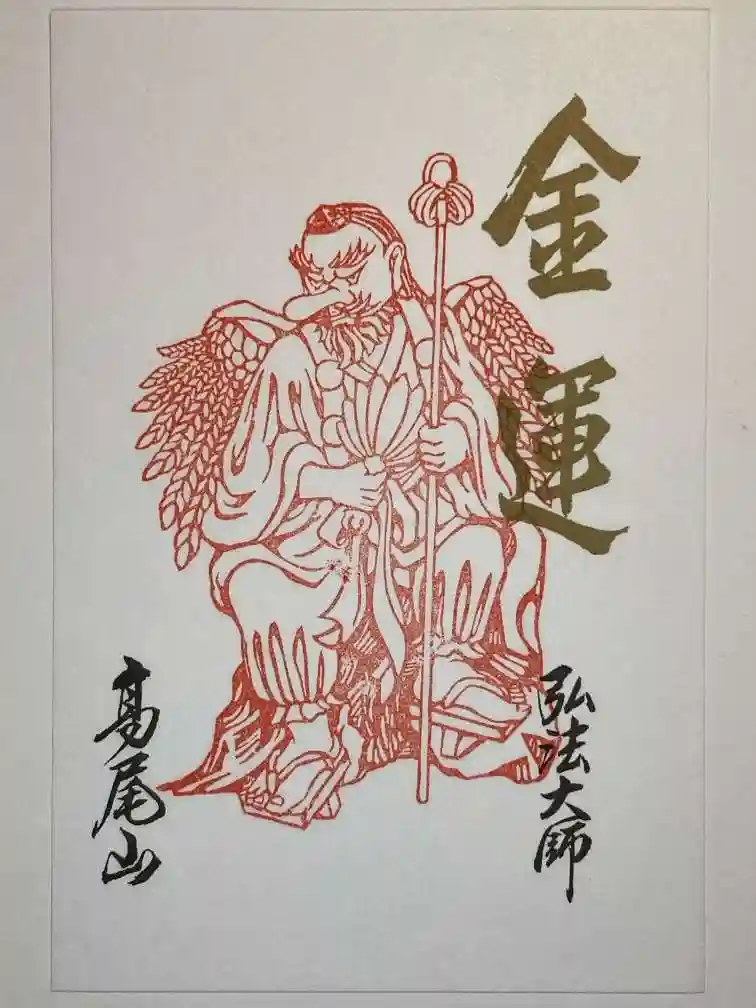 金運
弘法大師
髙尾山